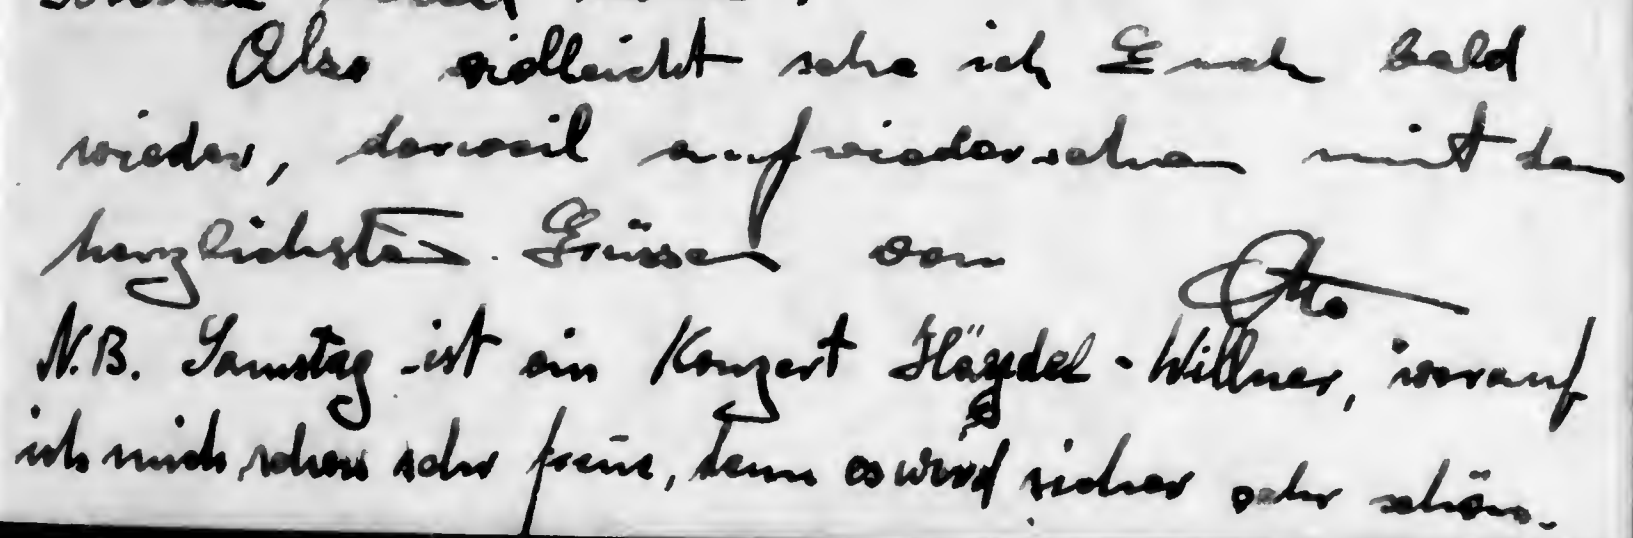 Also vielleicht sehe ich Euch bald
wieder, derweil aufwiedersehen mit den
herzlichsten Grüssen von
Otto
N.B. Samstag ist ein Konzert Häydel-Willner, worauf
ich mich schon sehr freue, denn es wird sicher sehr schön.